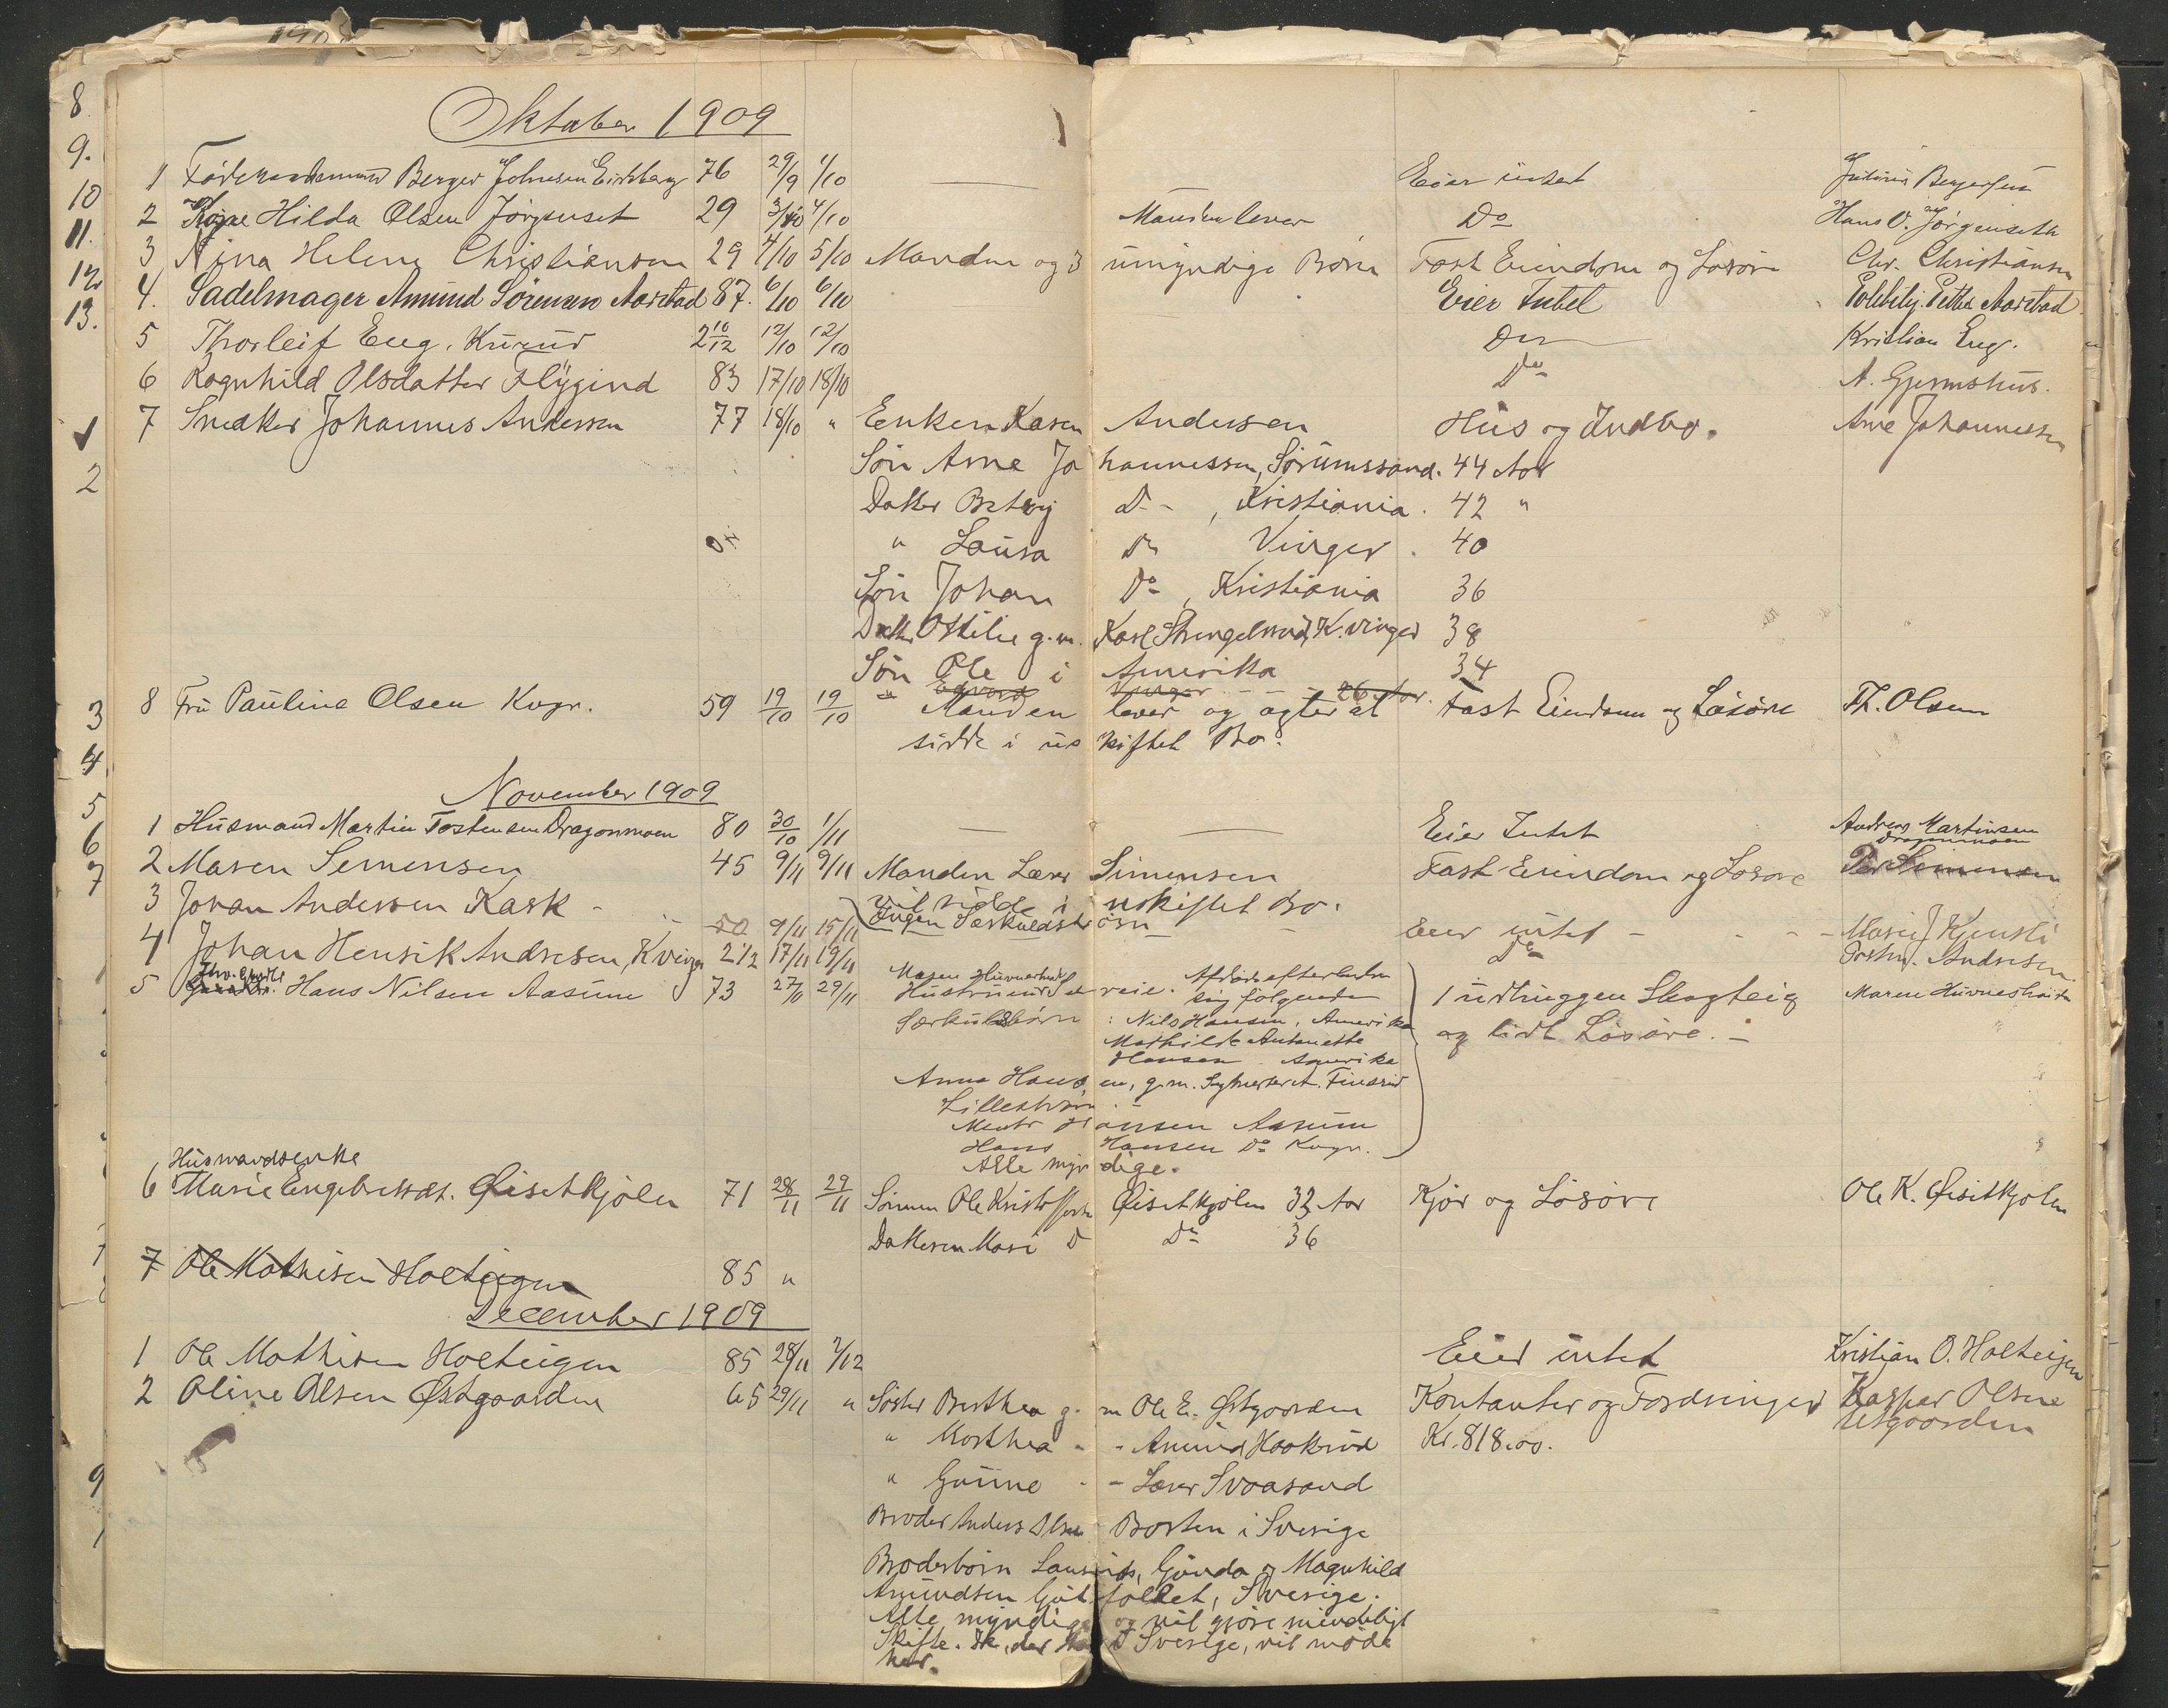 8
9.
10
11.
12
13.
1
2
3
4
5
6
7
9
Oktober 1909
1 Föderaadsmand Berger Johnsen 76 29/9 1/10 — Eier intet
2 Kone Hilda Olsen Jörgenset 29 3/10 4/10 Manden lever Do Hans O. Jörgenseth
3 Nina Helene Christiansen 29 4/10 5/10 Manden og 3 umyndige Börn Fast Eiendom og Lösöre Chr. Christiansen
4. Sadelmager Amund Sörensen Aarstad 87. 6/10 6/10 Eier Intet Petter Aarstad
5 Thorleif Eng. Kurud 2 10/12 12/10 12/10 Do Kristian Eng.
6 Ragnhild Olsdatter Flÿgind 83 17/10 18/10 Do A. Gjermshus.
7 Snedker Johannes Andersen 77 18/10 " Enken Karen Andersen Hus og Indbo. Arne Johannessen
Sön Arne Johannessen, Sörumssand. 44 Aar
Datter Betzy D- , Kristiania. 42 "
" Lousa Do Vinger. 40
Sön Johan Do , Kristiania 36
Datter Ottilie g.m. Karl Strengelsrud, K.vinger 38
Sön Ole i Amerika 34
" Edvard Vinger - - - 26 Aar.
8 Fru Pauline Olsen Kvgr. 59 19/10 19/10 Manden lever og agter at Fast Eiendom og Lösöre Th. Olsen
sidde i uskiftet Bo.
November 1909
1 Husmand Martin Tostensen Dragonmoen 80 30/10 1/11 — — Eier Intet Andreas Martinsen
Dragonmoen
2 Maren Semensen 45 9/11 9/11 Manden Lærer Simensen Fast Eiendom og Lösöre Per Semensen
vil sidde i uskiftet Bo.
3 Johan Andersen Kask - 50 9/11 15/11 Ingen Særkuldsbörn — - Eier intet - - - - Marie J Kjensli
4 Johan Henrik Andresen, Kvinger 2 1/2 17/11 19/11 Do Andresen.
5 Hans Nilsen Aasum 73 27/11 29/11 Maren Huvneshaid Afdöde efterlader
Hustru sig følgende 1 udhuggen Skogteig Maren Huvneshaid
Særkulsbörn : Nils Hansen, Amerika og lidt Lösöre. -
Mathilde Antonette
Hansen Amerika
Anna Hansen, g.m. Finsrud
Lilleström.
Hansen Aasum
Hans Hansen Do Kvgr.
Alle myndige.
Husmandsenke
6 Marie Engebretsdt. Øisetkjölen 71 28/11 29/11 Sönnen Ole Kristoffersen Øisetkjölen 33 Aar Kjör og Lösöre Ole K. Øisetkjölen
Datteren Mari Do 36
7 Ole Mathisen Holteigen 85 "
December 1909
1 Ole Mathisen Holteigen 85 28/11 2/12 Eier intet Kristian O. Holteigen
2 Oline Olsen Østgaarden 65 29/11 " Söster Berthea g. m Ole E. Østgaarden Kontanter og Fordringer Kaspar Olsen
Utgaarden
" Marthea - - Amund Haakrud Kr. 818.00.
" Gunne - - Lærer Svaasand
Broder Anders Olsen Borten i Sverige
Broderbörn Laurids, Gunda og Magnhild
Amundsen Gutfallet, Sverige.
Alle myndige og vil gjöre mindeligt
Skifte. De, der bor i Sverige, vil möde
her.